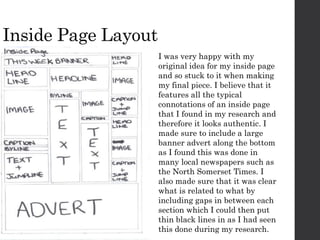 Inside Page Layout
Inside Page
THIS WEEK BANNER
HEAD
LINE
HEAD
LINE
HEADLINE
IMAGE
BYLINE
IMAGE
T
E
X
T
IMAGE
CAPTION
T
E
X
T
CAPTION
+
JUMP
LINE
HEAD
LINE
IMAGE
CAPTION
BYLINE
TEXT
+
JUMPLINE
CAPTION
+
JUMP
LINE
ADVERT
I was very happy with my
original idea for my inside page
and so stuck to it when making
my final piece. I believe that it
features all the typical
connotations of an inside page
that I found in my research and
therefore it looks authentic. I
made sure to include a large
banner advert along the bottom
as I found this was done in
many local newspapers such as
the North Somerset Times. I
also made sure that it was clear
what is related to what by
including gaps in between each
section which I could then put
thin black lines in as I had seen
this done during my research.